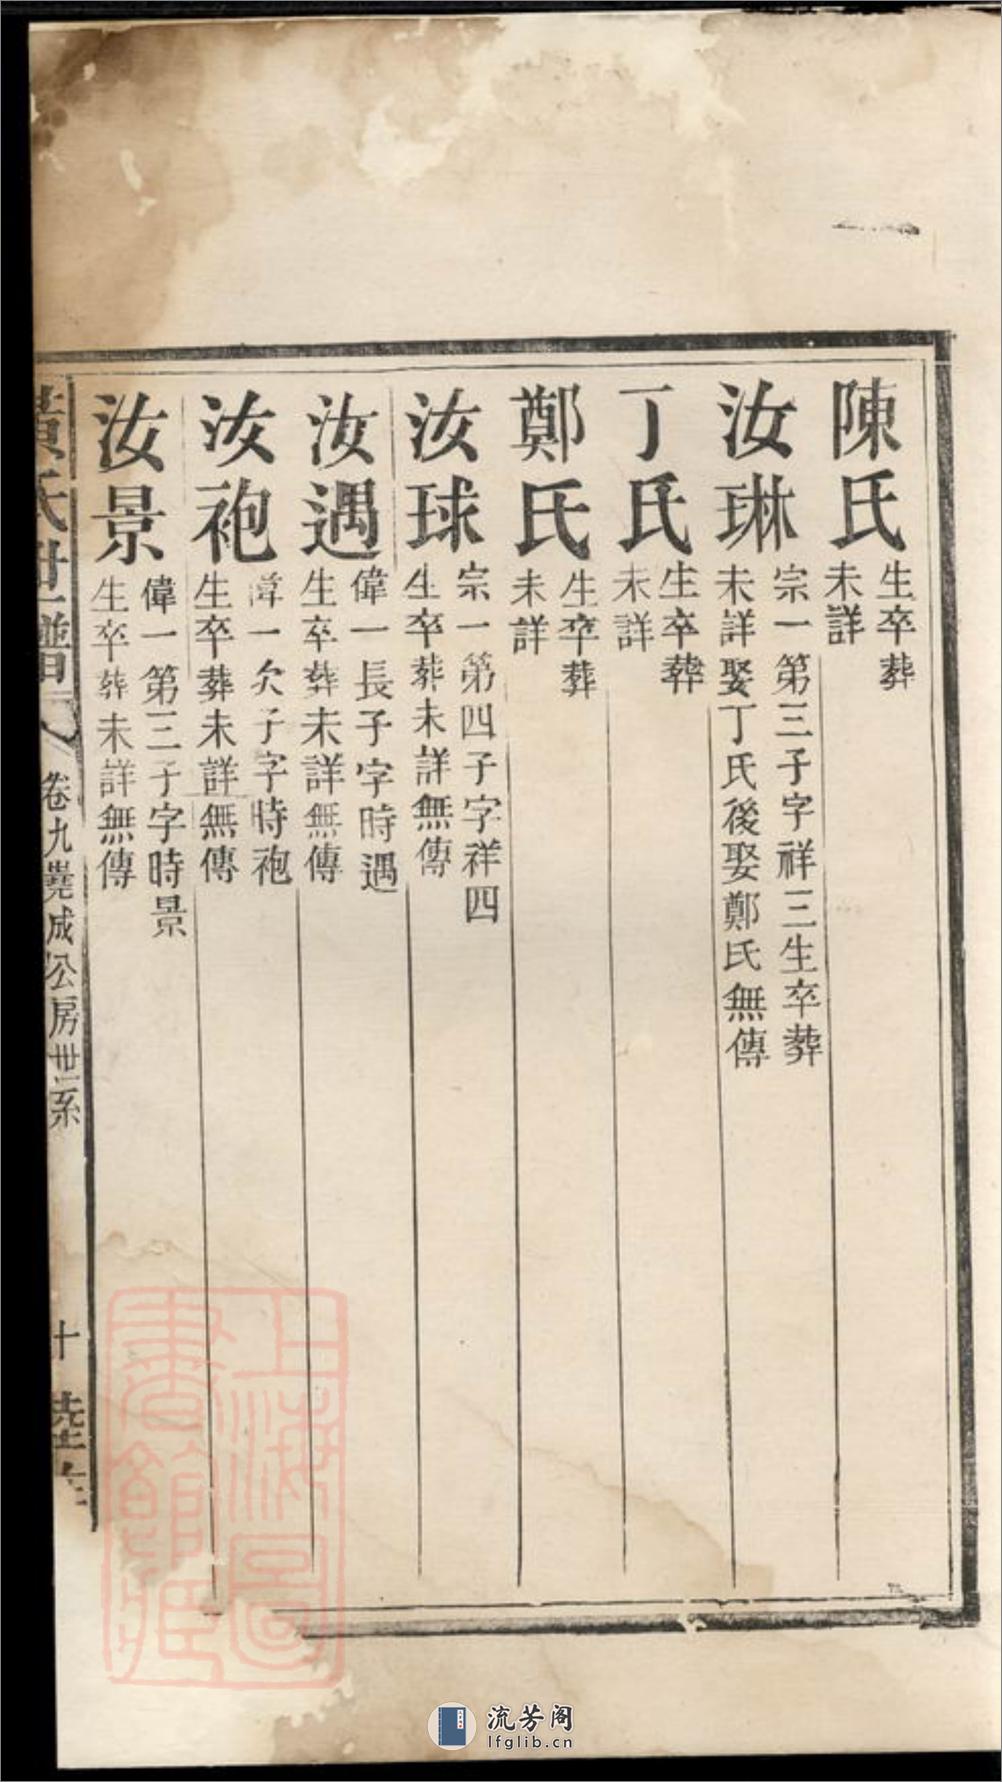 陳氏
生卒葬
未詳
汝琳
宗一第三子字祥三生卒葬
未詳娶丁氏後娶鄭氏無傳
丁氏
生卒葬
未詳
鄭氏
生卒葬
未詳
汝球
宗一第四子字祥四
生卒葬未詳無傳
汝遇
偉一長子字時遇
生卒葬未詳無傳
汝袍
偉一次子字時袍
生卒葬未詳無傳
汝景
偉一第三子字時景
生卒葬未詳無傳
黃氏世譜
卷九堯成公房世系
十
陸
上海圖書館藏
流芳阁
lfglib.cn